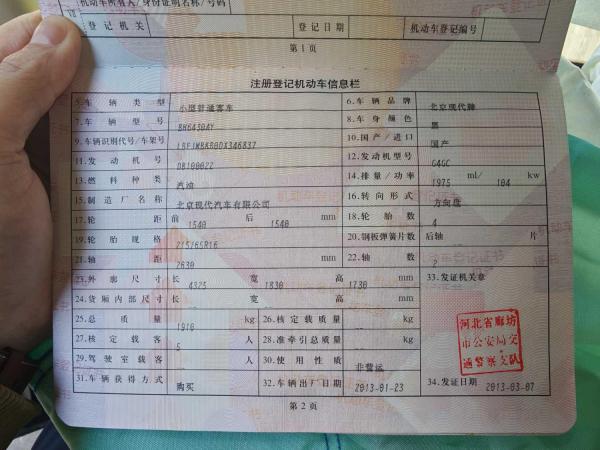 机动车所有人/身份证明名称/号码
登记机关 登记日期 机动车登记编号
第1页
注册登记机动车信息栏
5.车辆类型 小型普通客车 6.车辆品牌 北京现代牌
7.车辆型号 BH6430AY 8.车身颜色 黑
9.车辆识别代号/车架号 10.国产/进口 国产
11.发动机号 12.发动机型号 G4GC
13.燃料种类 汽油 14.排量/功率 1975 ml/ 104 kw
15.制造厂名称 北京现代汽车有限公司 16.转向形式 方向盘
17.轮距 前 1540 后 1540 mm 18.轮胎数 4
19.轮胎规格 215/65R16 20.钢板弹簧片数 后轴 片
21.轴距 2630 mm 22.轴数 2
23.外廓尺寸 长 4325 宽 1830 高 1730 mm 33.发证机关章
24.货厢内部尺寸 长 宽 高 mm
25.总质量 1910 kg 26.核定载质量 kg
27.核定载客 5 人 28.准牵引总质量 kg
29.驾驶室载客 人 30.使用性质 非营运
31.车辆获得方式 购买 32.车辆出厂日期 2013-01-23 34.发证日期 2013-03-07
河北省廊坊
市公安局交
通警察支队
第2页